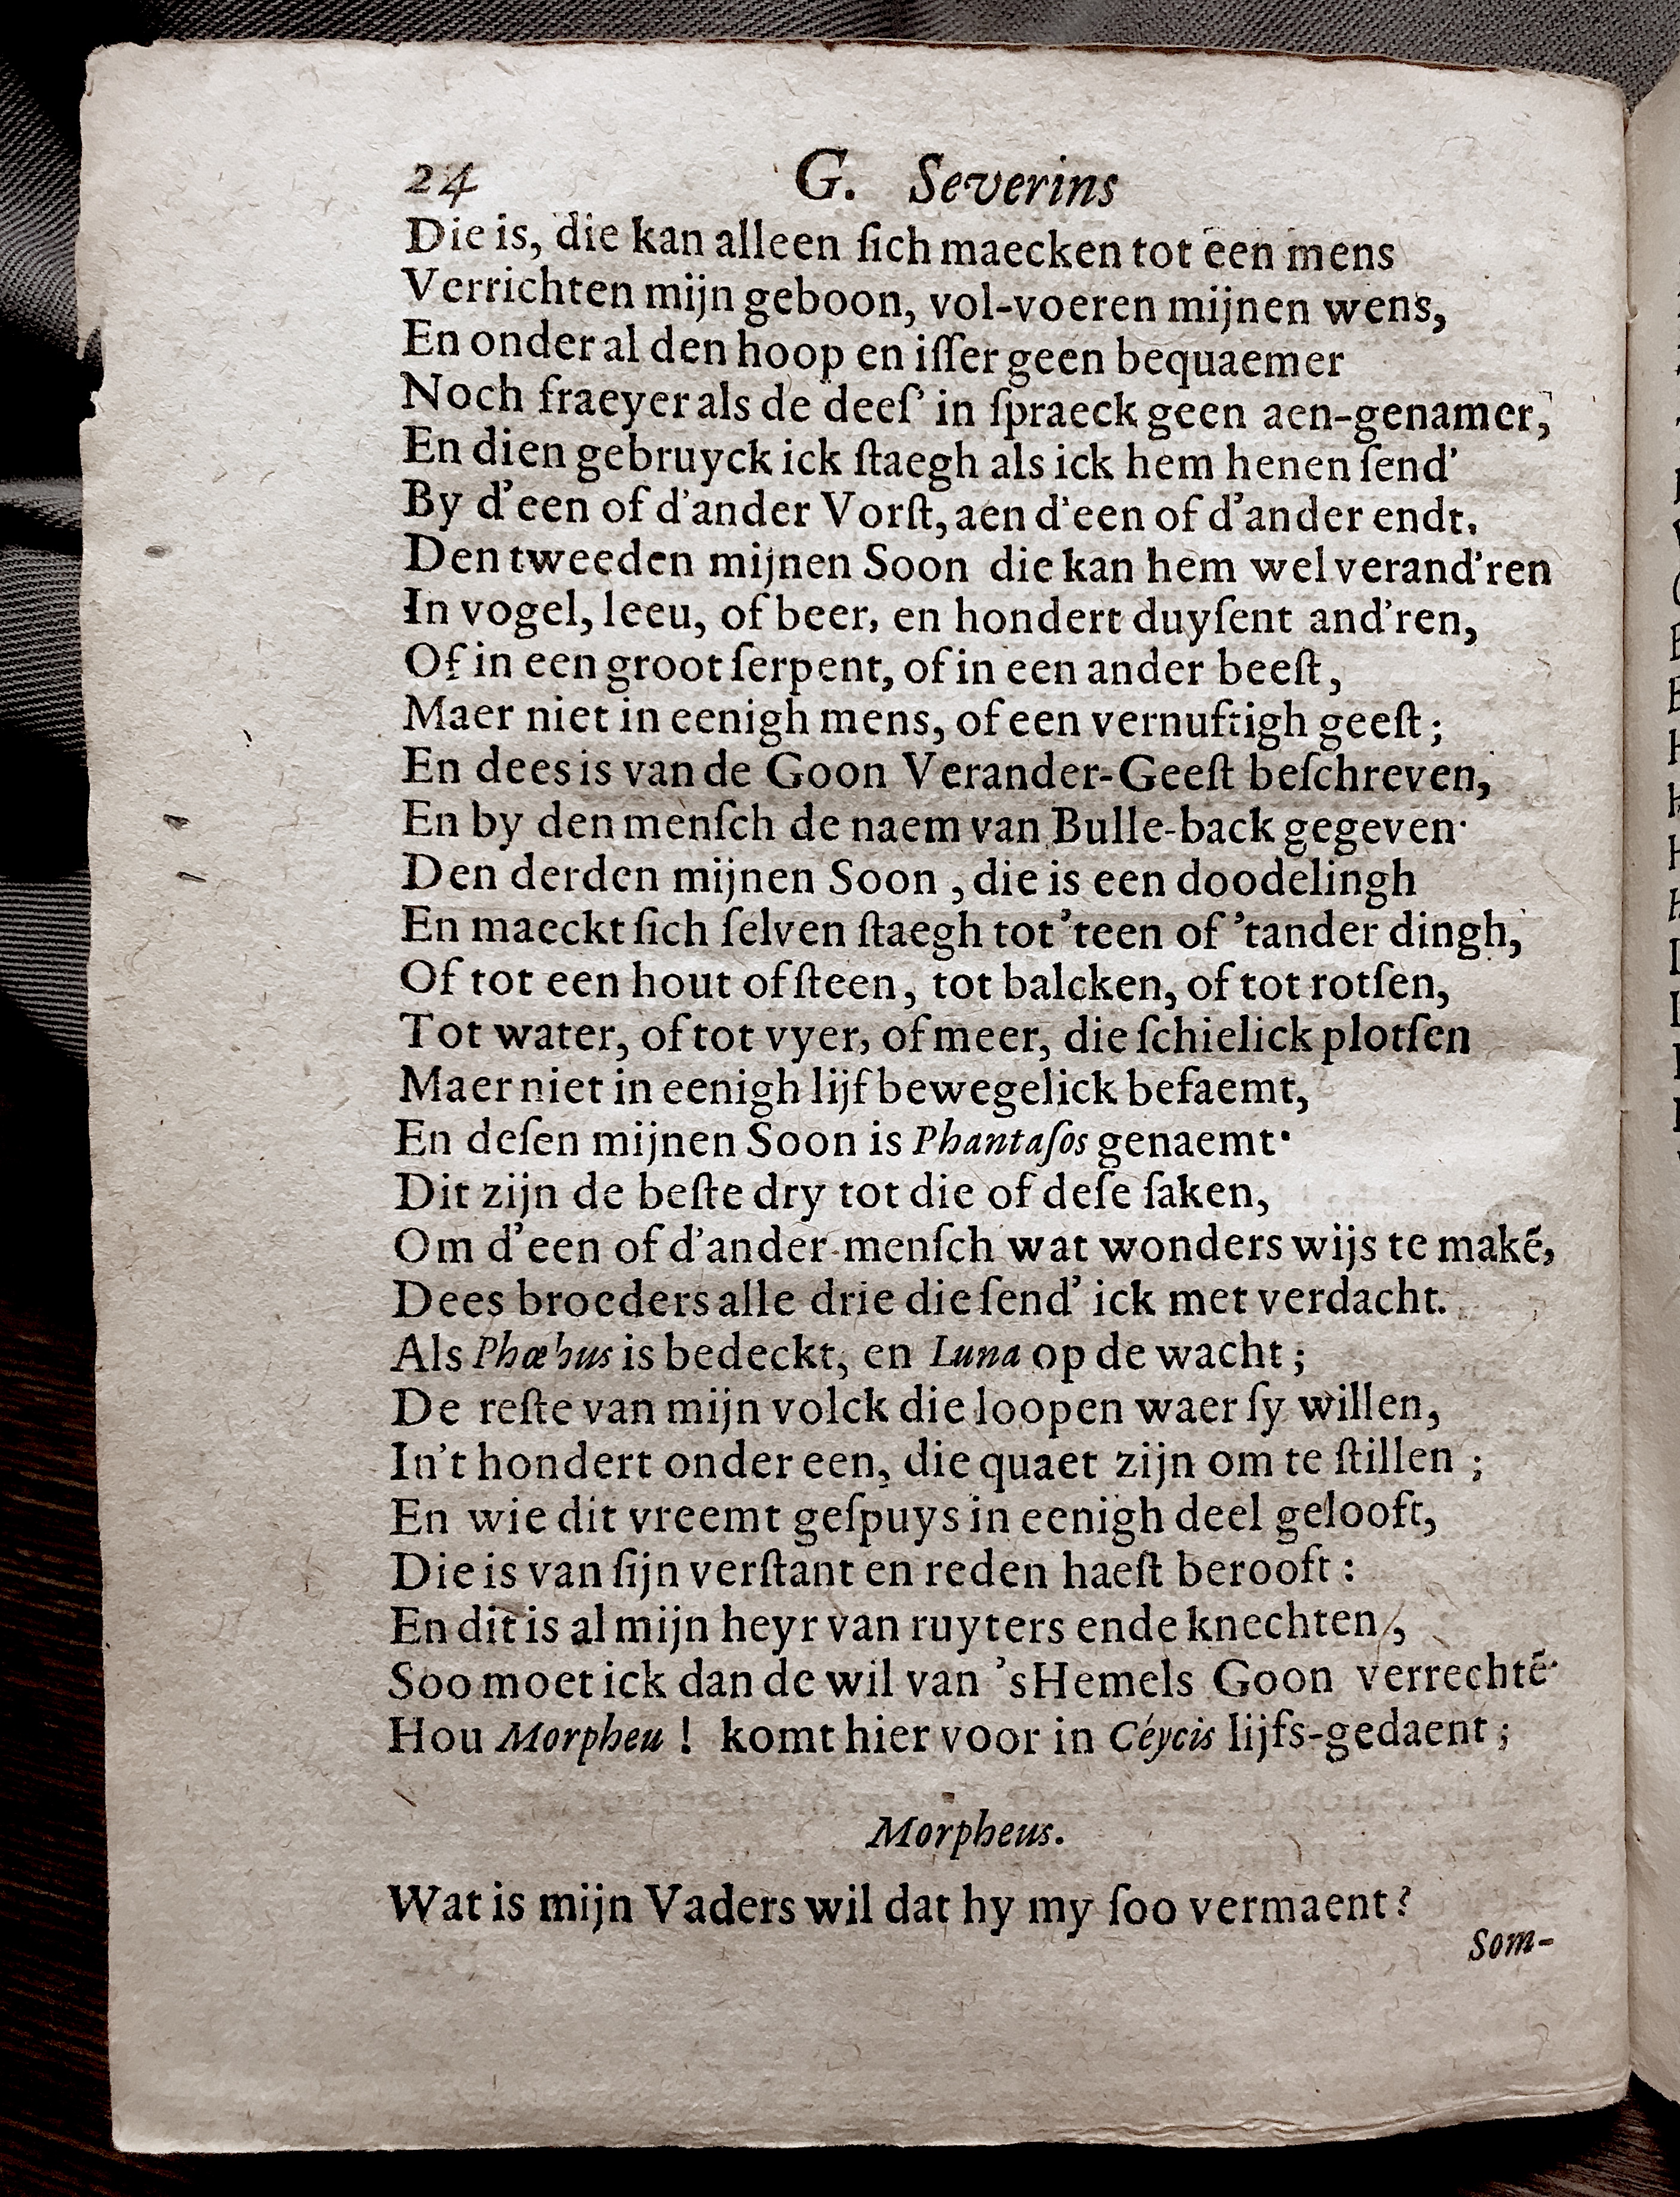 24 G. Severins
Die is, die kan alleen ſich maecken tot een mens
Verrichten mijn geboon, vol-voeren mijnen wens,
En onder al den hoop en iſſer geen bequaemer
Noch fraeyer als de deeſ' in ſpraeck geen aen-genamer,
En dien gebruyck ick ſtaegh als ick hem henen ſend'
By d'een of d'ander Vorſt, aen d'een of d'ander endt.
Den tweeden mijnen Soon die kan hem wel verand'ren
In vogel, leeu, of beer, en hondert duyſent and'ren,
Of in een groot ſerpent, of in een ander beeſt,
Maer niet in eenigh mens, of een vernuftigh geeſt;
En dees is van de Goon Verander-Geeſt beſchreven,
En by den menſch de naem van Bulle-back gegeven·
Den derden mijnen Soon, die is een doodelingh
En maeckt ſich ſelven ſtaegh tot 'teen of 'tander dingh,
Of tot een hout of ſteen, tot balcken, of tot rotſen,
Tot water, of tot vyer, of meer, die ſchielick plotſen
Maer niet in eenigh lijf bewegelick befaemt,
En deſen mijnen Soon is Phantaſos genaemt·
Dit zijn de beſte dry tot die of deſe ſaken,
Om d'een of d'ander menſch wat wonders wijs te makẽ,
Dees broeders alle drie die ſend' ick met verdacht.
Als Phœbus is bedeckt, en Luna op de wacht;
De reſte van mijn volck die loopen waer ſy willen,
In't hondert onder een, die quaet zijn om te ſtillen;
En wie dit vreemt geſpuys in eenigh deel gelooft,
Die is van ſijn verſtant en reden haeſt berooft:
En dit is al mijn heyr van ruyters ende knechten,
Soo moet ick dan de wil van 'sHemels Goon verrechtẽ·
Hou Morpheu! komt hier voor in Céycis lijfs-gedaent;
Morpheus.
Wat is mijn Vaders wil dat hy my ſoo vermaent?
Som-